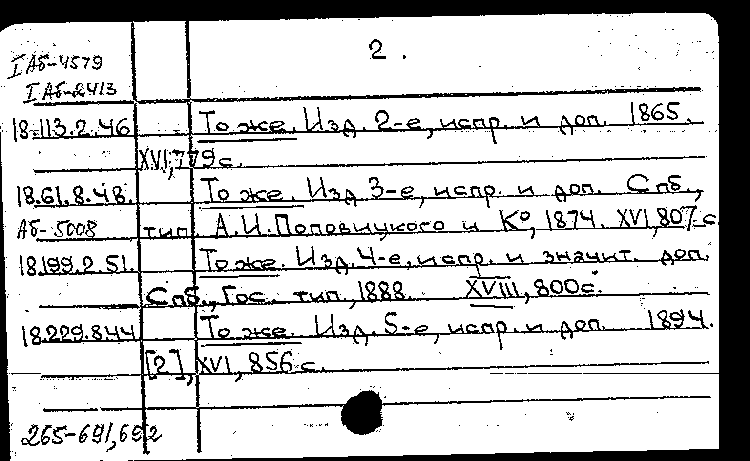 2.
I Аб-4579
I Аб-2413
18.113.2.46 То же. Изд. 2-е, испр. и доп. 1865.
XVI, 779 с.
18.61.8.48. То же. Изд. 3-е, испр. и доп. Спб.,
Аб-5008 тип. А.И.Поповицкого и К°, 1874. XVI, 807 с.
18.199.2.51. То же. Изд. 4-е, испр. и значит. доп.
Спб., Гос. тип., 1888. XVIII, 800с.
18.229.8.44 То же. Изд. 5-е, испр. и доп. 1894.
[2], XVI, 856 с.
265-691,692